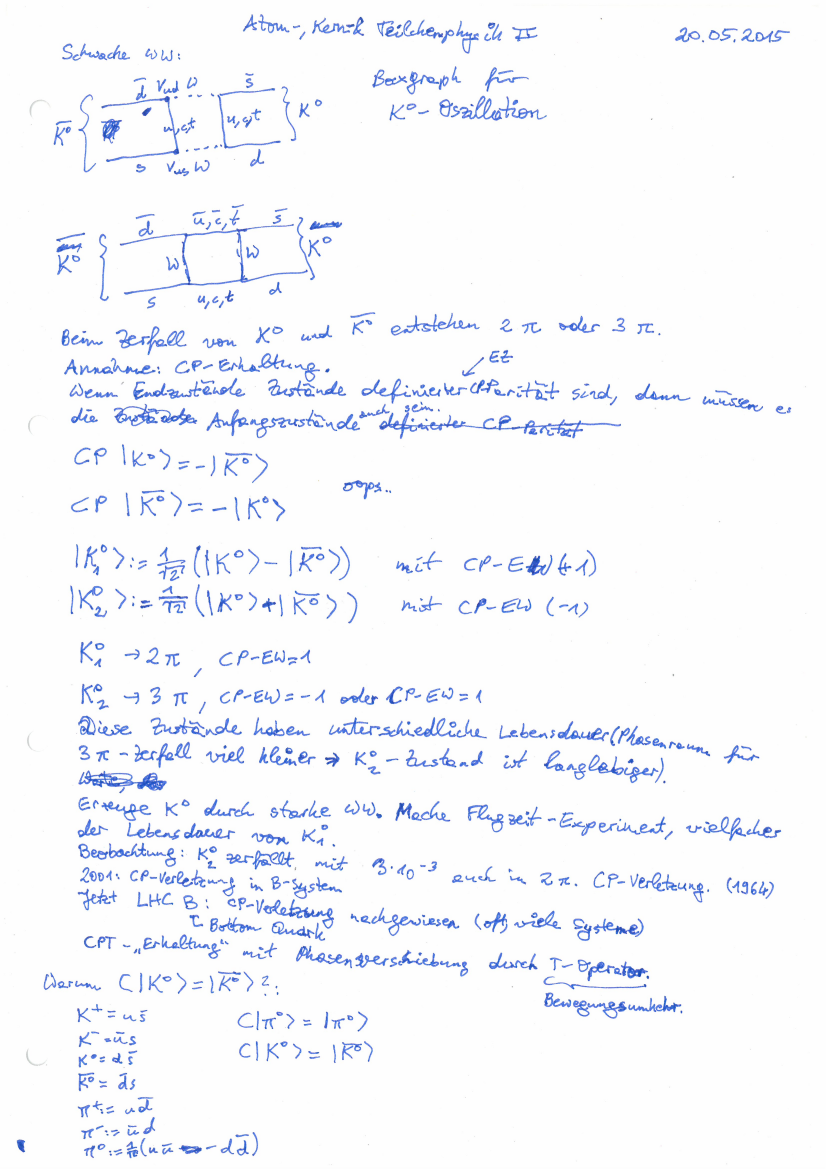 Atom-, Kern- & Teilchenphysik II 20.05.2015
Schwache WW:
d̄ Vud W s̄
K̄⁰ { u,c,t u,c,t } K⁰
s Vus W d
Boxgraph für
K⁰-Oszillation
d̄ ū,c̄,t̄ s̄
K̄⁰ { W W } K⁰
s u,c,t d
Beim Zerfall von K⁰ und K̄⁰ entstehen 2 π oder 3 π.
Annahme: CP-Erhaltung. ↙ EZ
Wenn Endzustände Zustände definierter CP-Parität sind, dann müssen es
die Anfangszustände auch sein.
CP |K⁰⟩ = -|K̄⁰⟩
CP |K̄⁰⟩ = -|K⁰⟩
oops..
|K₁⁰⟩ := 1/√2 (|K⁰⟩ - |K̄⁰⟩) mit CP-EW (+1)
|K₂⁰⟩ := 1/√2 (|K⁰⟩ + |K̄⁰⟩) mit CP-EW (-1)
K₁⁰ → 2 π , CP-EW=1
K₂⁰ → 3 π , CP-EW=-1 oder CP-EW=1
Diese Zustände haben unterschiedliche Lebensdauer (Phasenraum für
3 π-Zerfall viel kleiner ⇒ K₂⁰-Zustand ist langlebiger).
Erzeuge K⁰ durch starke WW. Mache Flugzeit-Experiment, vielfacher
der Lebensdauer von K₁⁰.
Beobachtung: K₂⁰ zerfällt mit 3·10⁻³ auch in 2 π. CP-Verletzung. (1964)
2001: CP-Verletzung in B-System
Jetzt LHC B: CP-Verletzung nachgewiesen (oft) viele Systeme)
↖ Bottom Quark
CPT-„Erhaltung" mit Phasenverschiebung durch T-Operator.
Bewegungsumkehr.
Warum C|K⁰⟩ = |K̄⁰⟩ ?:
K⁺ = u s̄ C|π⁰⟩ = |π⁰⟩
K⁻ = ū s C|K⁰⟩ = |K̄⁰⟩
K⁰ = d s̄
K̄⁰ = d̄ s
π⁺ := u d̄
π⁻ := ū d
π⁰ := 1/√2 (u ū - d d̄)